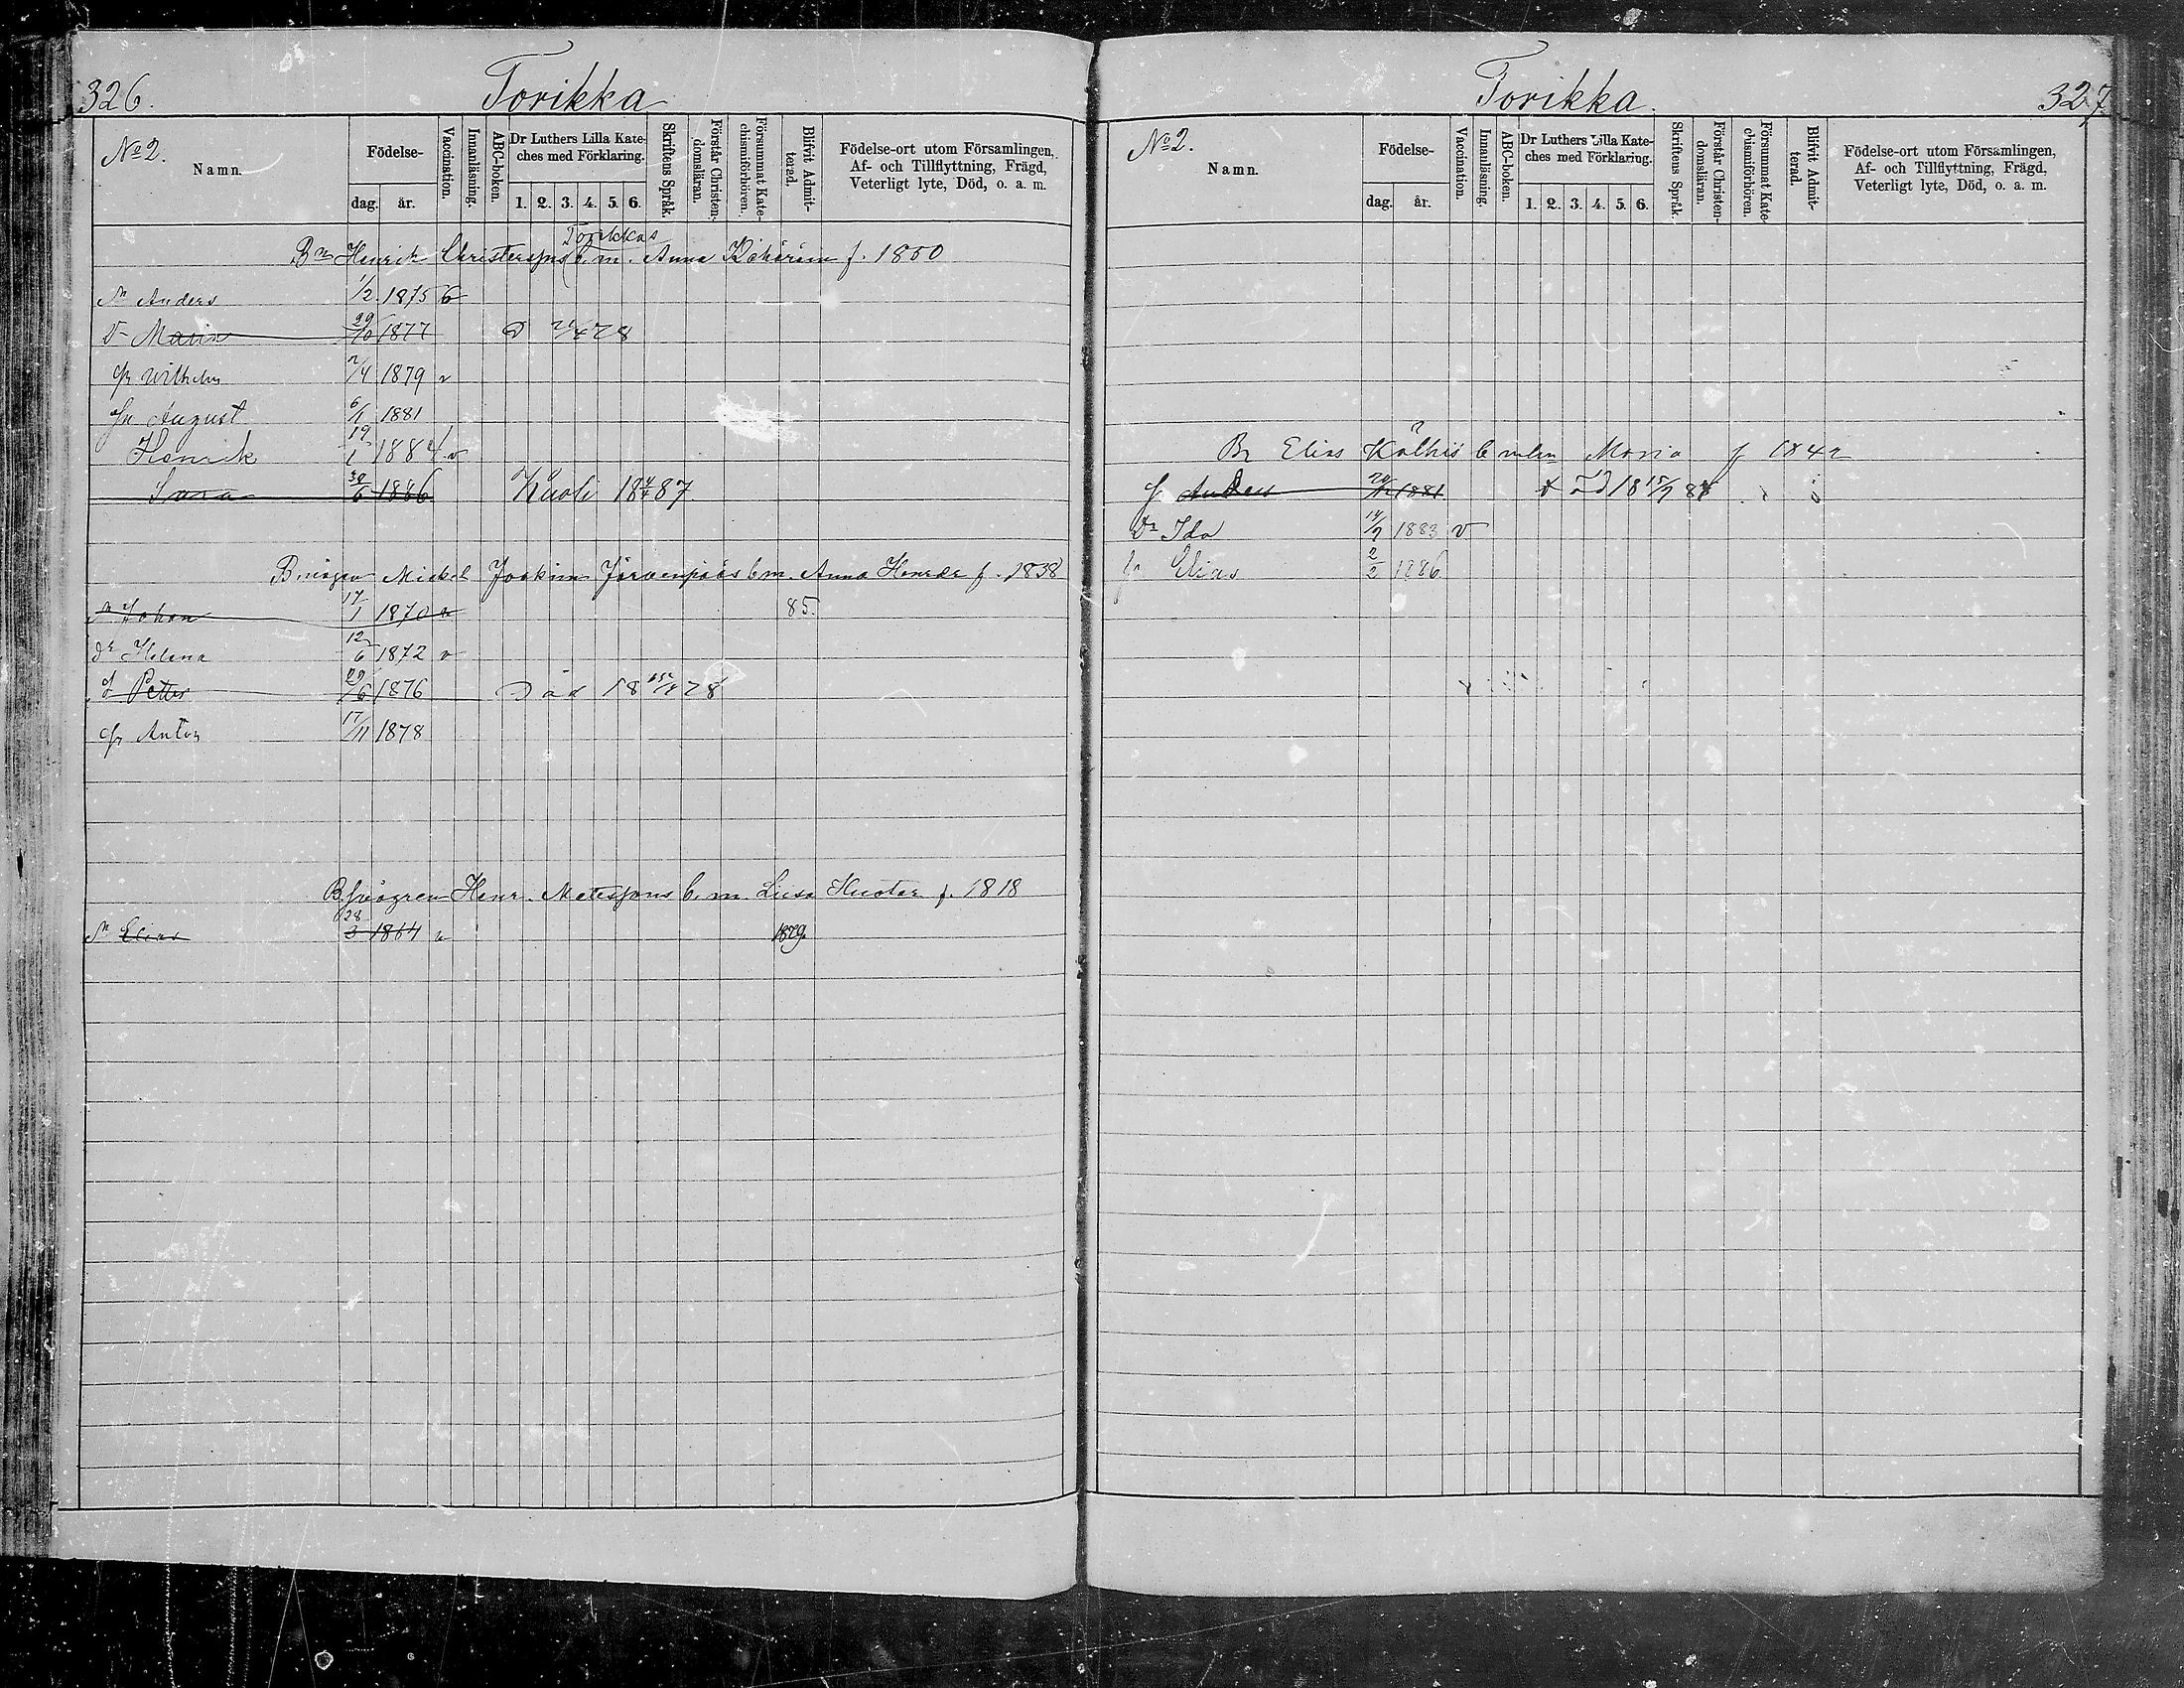 326.
Torikka
No 2.
Namn.
Födelse-
dag. år.
Vaccination.
Innanläsning.
ABC-boken.
Dr Luthers Lilla Kate-
ches med Förklaring.
1. 2. 3. 4. 5. 6.
Skriftens Språk.
Förstår Christen-
domsläran.
Försummat Kate-
chismiförhören.
Blifvit Admit-
terad.
Födelse-ort utom Församlingen,
Af- och Tillflyttning, Frägd,
Veterligt lyte, Död, o. a. m.
Torikkas
Bn Henrik Christerssons b. m. Anna f. 1850
Sn Anders 1/2 1875
Dr Maria 29/10 1877 D 78
Sn Wilhelm 2/4 1879 v
Sn August 6/1 1881
Henrik 19/1 1884 v
30/6 1886 Kuoli 18 4/4 87
Mickel Joakim Järvenpääs b m. Anna Henrdr f. 1838
Sn Johan 17/1 1870 v 85.
Dr Helena 12/6 1872 v
S Petter 29/6 1876 Död 18 78
Sn Anton 17/11 1878
B. Henr. Matssons b. m. Liisa f. 1818
Sn Elias 28/3 1864 v 1879.
Torikka.
327.
No 2.
Namn.
Födelse-
dag. år.
Vaccination.
Innanläsning.
ABC-boken.
Dr Luthers Lilla Kate-
ches med Förklaring.
1. 2. 3. 4. 5. 6.
Skriftens Språk.
Förstår Christen-
domsläran.
Försummat Kate-
chismiförhören.
Blifvit Admit-
terad.
Födelse-ort utom Församlingen,
Af- och Tillflyttning, Frägd,
Veterligt lyte, Död, o. a. m.
Elias b Maria f 1842
Anders 1881
Dr Ida 14/9 1883 v
Elias 2/2 1886